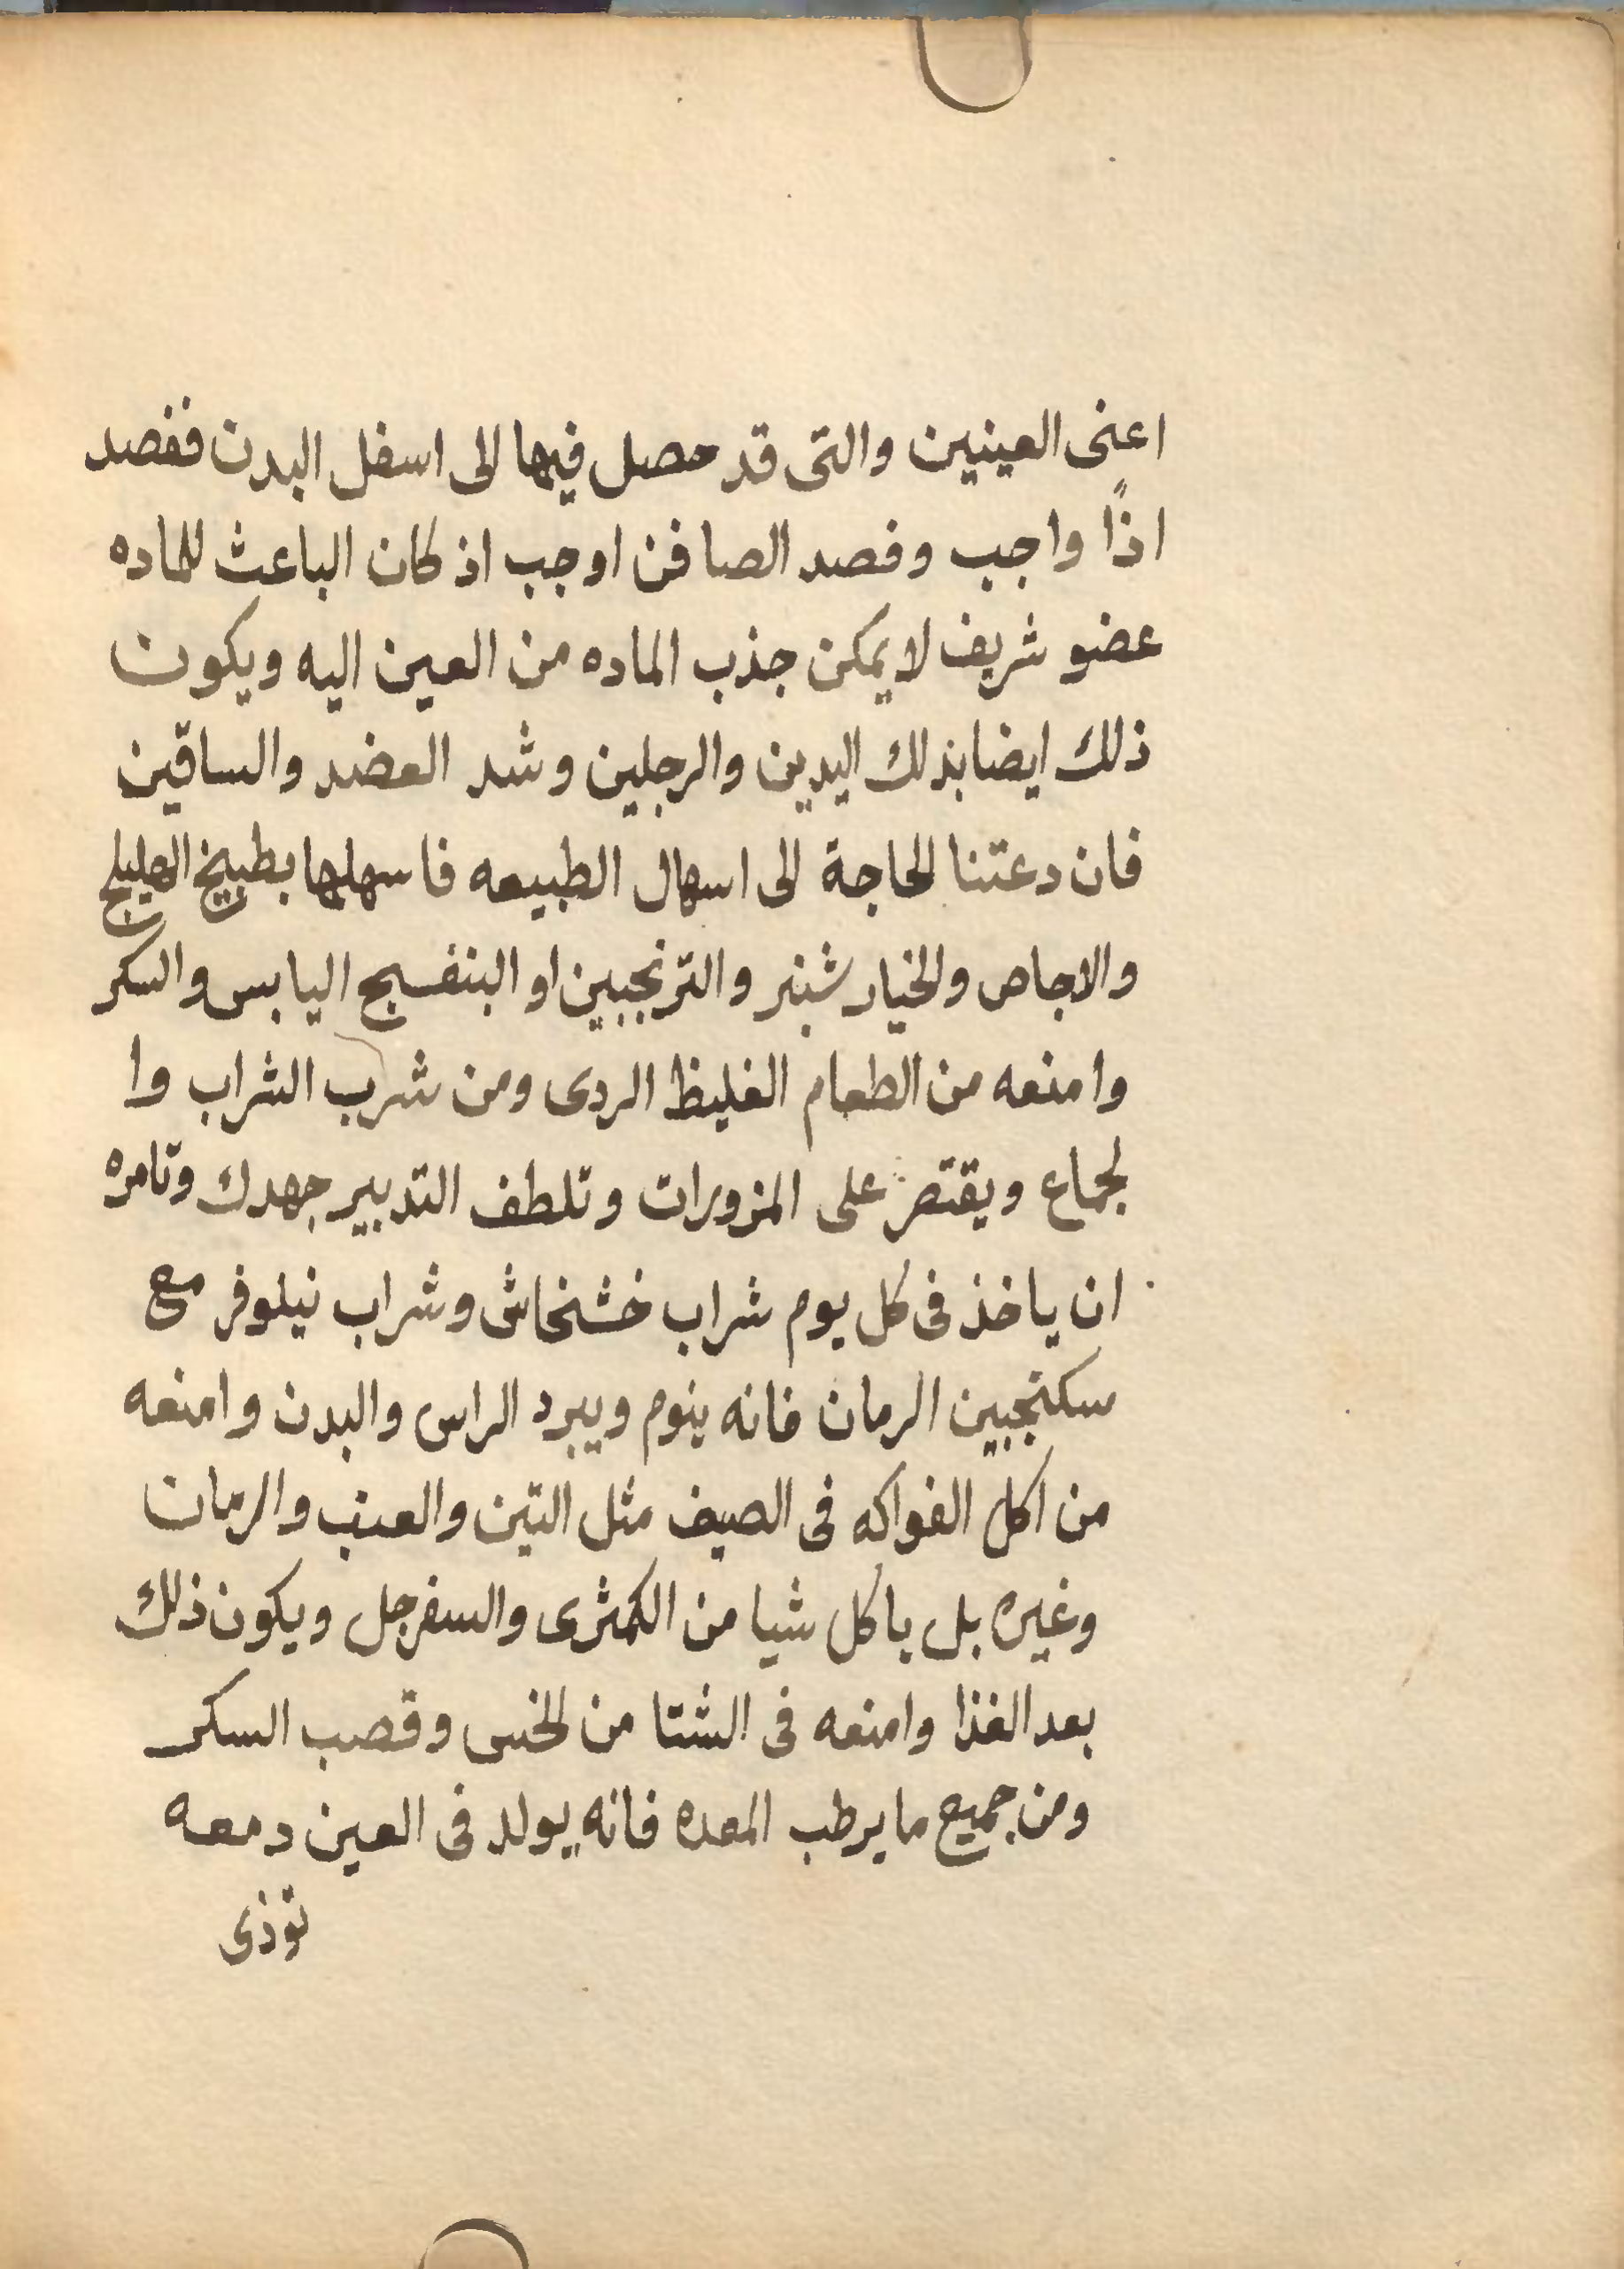 اعنى العينين والتى قد حصل فيها الى اسفل البدن ففصد
اذًا واجب وفصد الصافن اوجب اذ كان الباعث للماده
عضو شريف لا يمكن جذب الماده من العين اليه ويكون
ذلك ايضا بذلك اليدين والرجلين وشد العضد والساقين
فان دعتنا الحاجة الى اسهال الطبيعه فاسهلها بطبيخ الهليلج
والاجاص والخيار شنبر والترنجبين او البنفسج اليابس والسكر
وامنعه من الطعام الغليظ الردى ومن شرب الشراب وا
لجماع ويقتصر على المزورات وتلطف التدبير جهدك وتامره
ان ياخذ فى كل يوم شراب خشخاش وشراب نيلوفر مع
سكنجبين الرمان فانه ينوم ويبرد الراس والبدن وامنعه
من اكل الفواكه فى الصيف مثل التين والعنب والرمان
وغيره بل ياكل شيا من الكمثرى والسفرجل ويكون ذلك
بعد الغذا وامنعه فى الشتا من الخس وقصب السكر
ومن جميع ما يرطب المعده فانه يولد فى العين دمعه
توذى